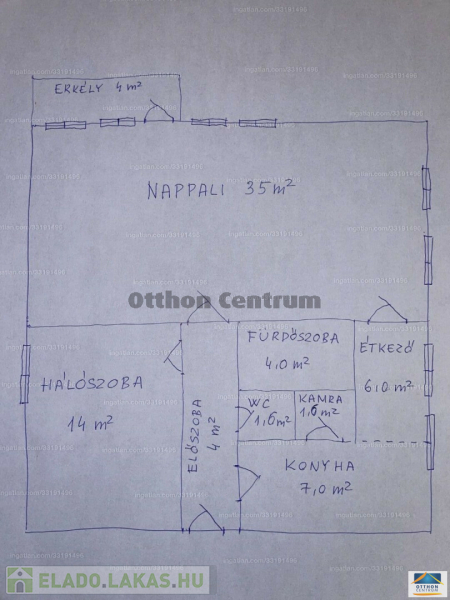 ERKÉLY 4 m²
NAPPALI 35 m²
Otthon Centrum
FÜRDŐSZOBA
4,0 m²
ÉTKEZŐ
6,0 m²
HÁLÓSZOBA
14 m²
ELŐSZOBA
4 m²
WC
1,6 m²
KAMRA
1,6 m²
KONYHA
7,0 m²
ELADO.LAKAS.HU
OTTHON
CENTRUM